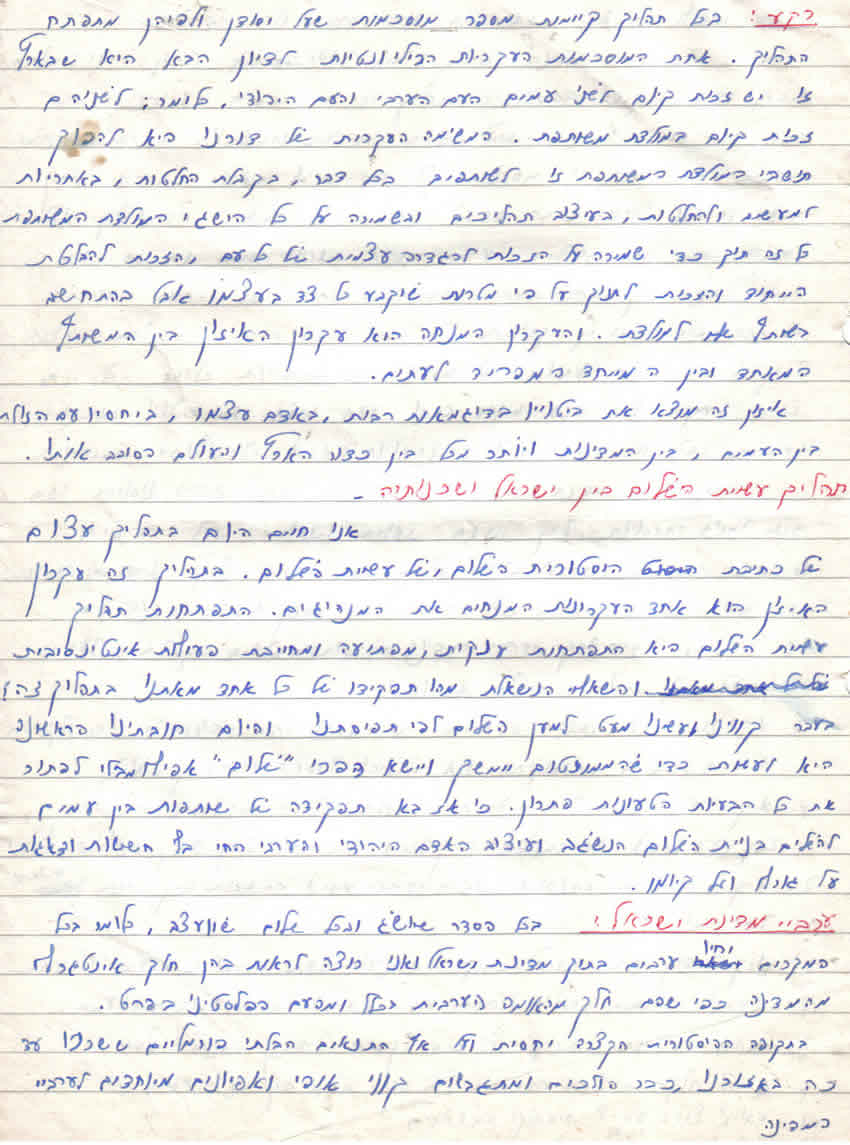 רקע: בכל תהליך קיימות מספר מוסכמות שעל יסודן ולפיהן מתפתח
התהליך. אחת המוסכמות העקריות הרלוונטיות לדיון הבא היא שבארץ
זו יש זכות קיום לשני עמים העם הערבי והעם היהודי, כלומר; לשניהם
זכות קיום במולדת משותפת. המשימה העקרית של דורנו היא להפוך
תושבי המולדת המשותפת זו לשותפים בכל דבר, בקבלת החלטות, באחריות
למעשים ולהחלטות, בעיצוב תהליכים ובשמירה על כל הישגי המולדת המשותפת
כל זה תוך כדי שמירה על הזכות להגדרה עצמית של כל עם, הזכות להבלטת
הייחוד והזכות לחנוך על פי מטרות שיקבע כל צד בעצמו אבל בהתחשב
בשותף למולדת. והעקרון המנחה הוא עקרון האיזון בין המשותף
המאחד ובין המייחד המפריד לעתים.
איזון זה מוצא את ביטויו בדוגמאות רבות, באדם עצמו, ביחסיו עם הזולת
בין העמים, בין המדינות ויותר מכל בין כדור הארץ והעולם הסובב אותו.
תהליך עשיית השלום בין ישראל ושכנותיה -
אנו חיים היום בתהליך עצום
של כתיבת הוסטורית השלום, של עשיית השלום. בתהליך זה עקרון
האיזון הוא אחד העקרונות המנחים את המנהיגים. התפתחות תהליך
עשיית השלום היא התפתחות ענקית, מפתיעה ומחייבת פעילות אינטינסיבית
והשאלה הנשאלת מהו תפקידו של כל אחד מאתנו בתהליך זה?
בעבר קווינו ועשינו מעט למען השלום לפי תפיסתנו והיום חובתינו הראשונה
היא לעשות כדי שהמומנטום יימשך ויישא הפרי "שלום" אפילו מבלי לפתור
את כל הבעיות הטעונות פתרון. כי אז בא תפקידה של שותפות בין עמים
להשלים בניית השלום הנשגב ועיצוב האדם היהודי והערבי החי בלי חששות ודאגות
על גורלו ועל קיומו.
ערביי מדינת ישראל: בכל הסדר שיושג ובכל שלום שיועצב, כלומר בכל
המקרים יחיו ערבים בתוך מדינת ישראל ואני רוצה לראות בהן חלק אינטגרלי
מהמדינה כפי שהם חלק מהאומה הערבית בכלל ומהעם הפלסטיני בפרט.
בתקופה ההיסטורית הקצרה יחסית ועל אף התנאים הבלתי פורמליים ששררו עד
כה באזורנו, כבר הולכים ומתגבשים קווי אופי ואפיונים מיוחדים לערביי
המדינה